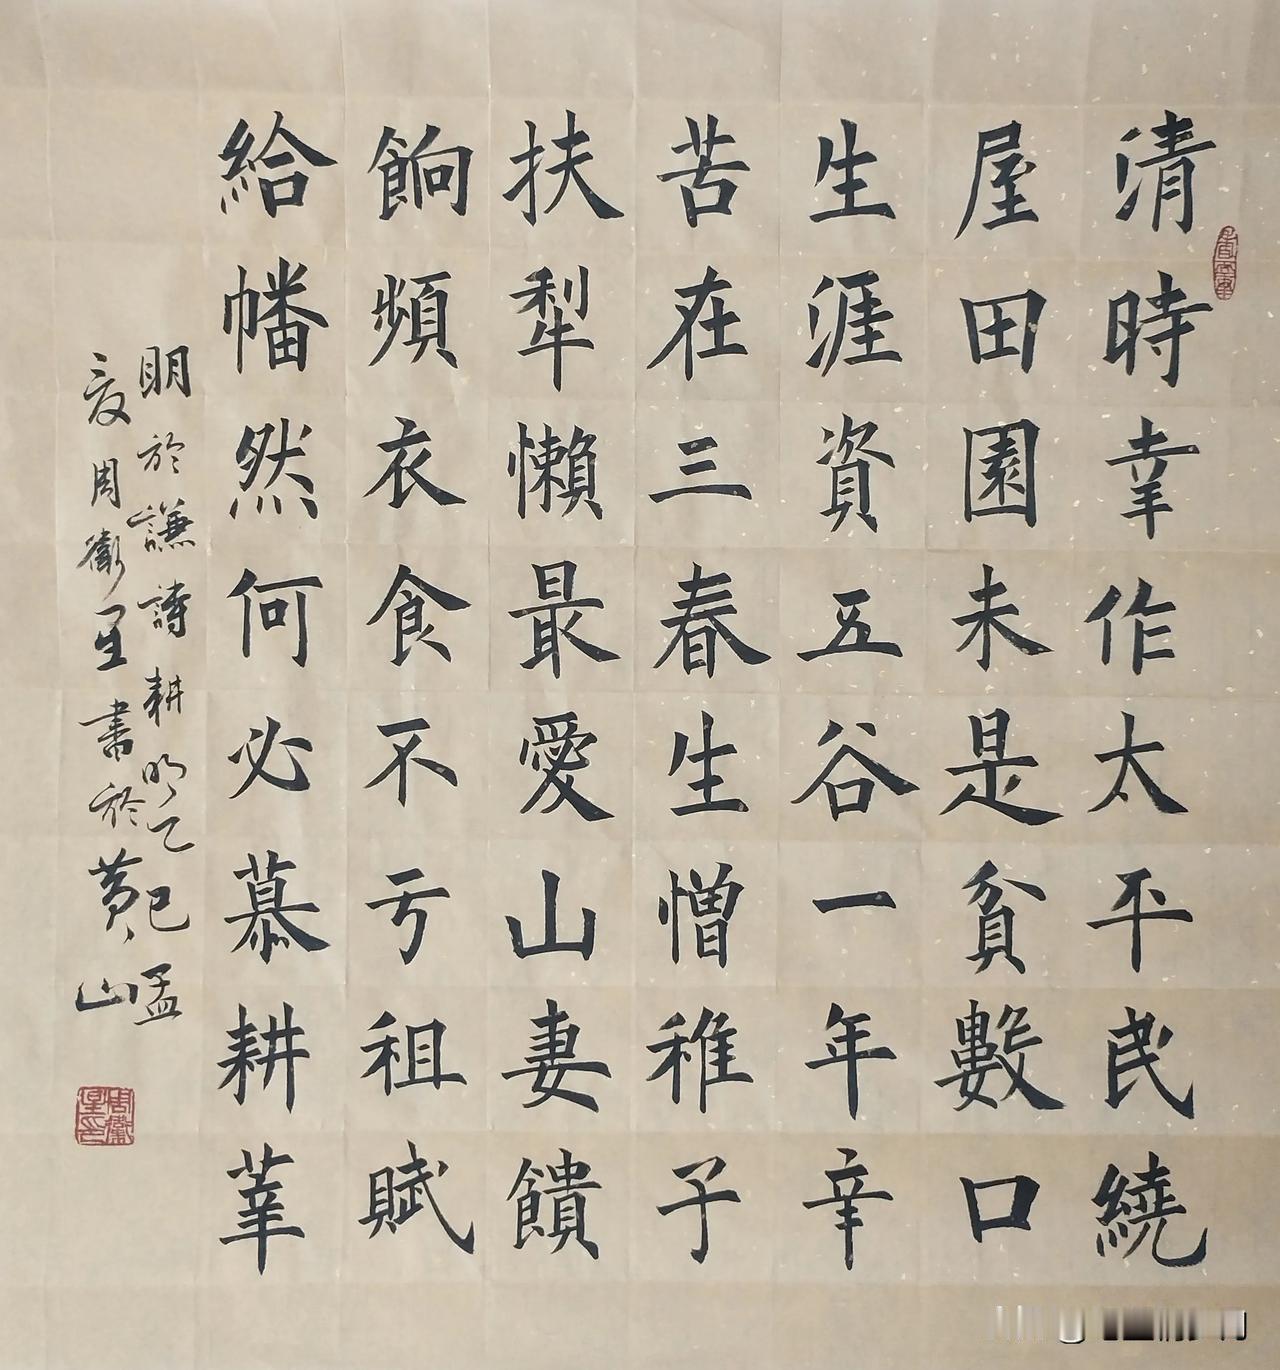 清時幸作太平民繞
屋田園未是貧數口
生涯資五谷一年辛
苦在三春生憎稚子
扶犁懶最愛山妻饋
餉頻衣食不亏租賦
給幡然何必慕耕莘
明於謙詩耕畊乙巳孟
夏周衛星書於黄山